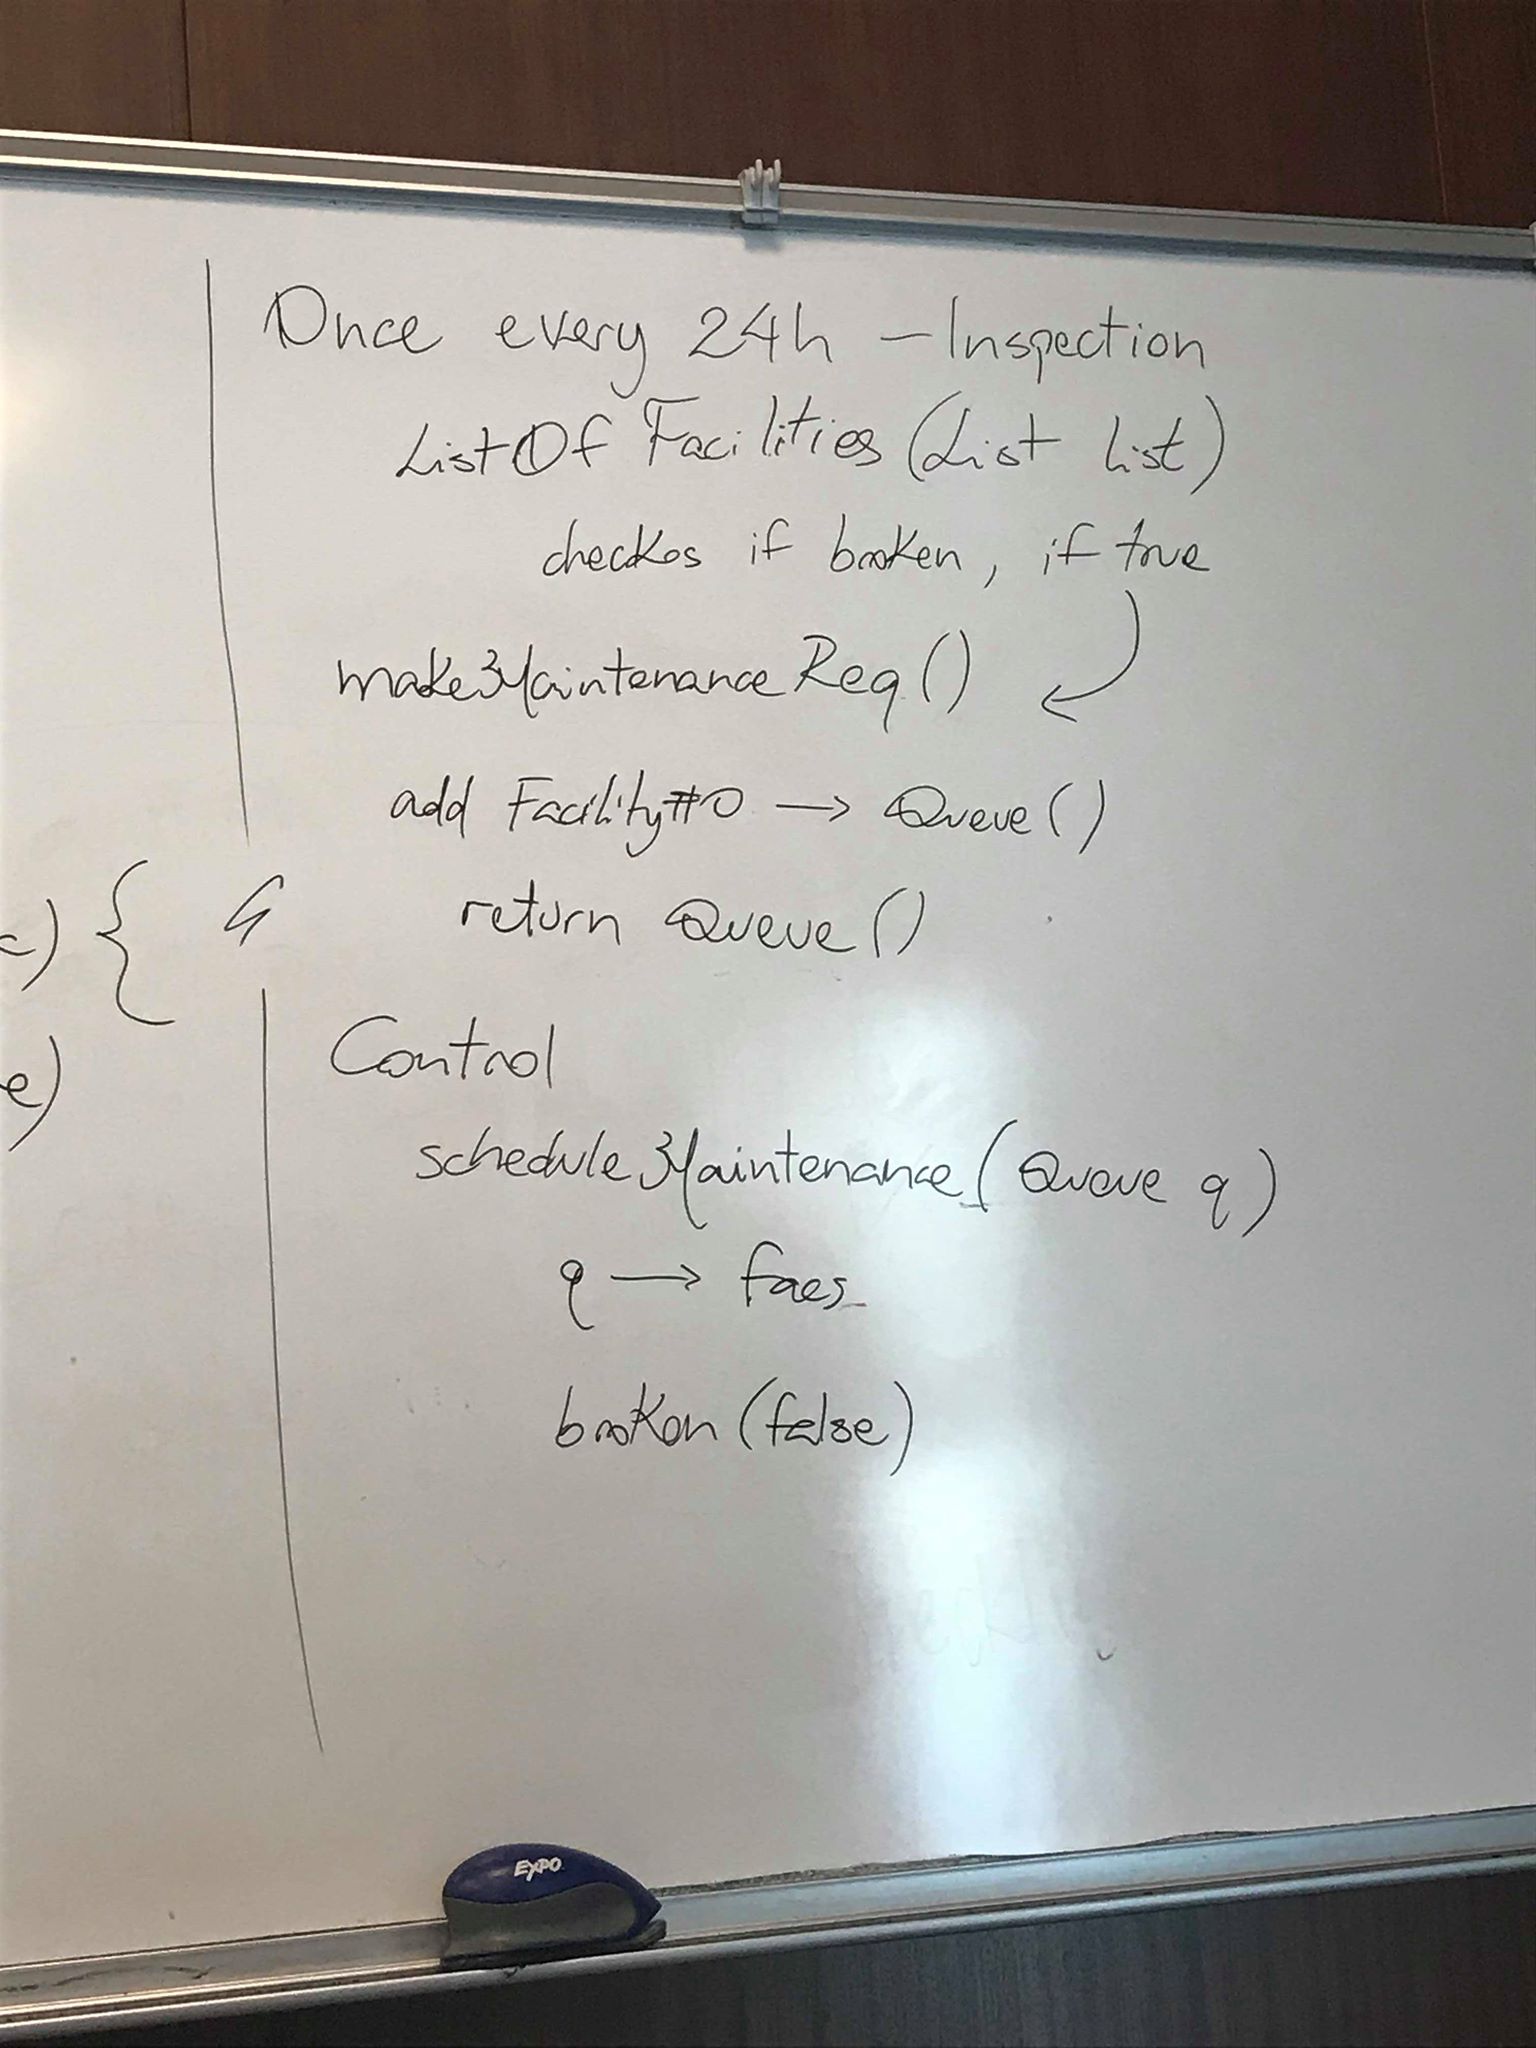 Once every 24h - Inspection
ListOf Facilities (List list)
checks if broken, if true
makeMaintenanceReq()
add Facility#0 → Queue()
c) {
return Queue()
e)
Control
scheduleMaintenance(Queue q)
q → facs
broken (false)
EXPO